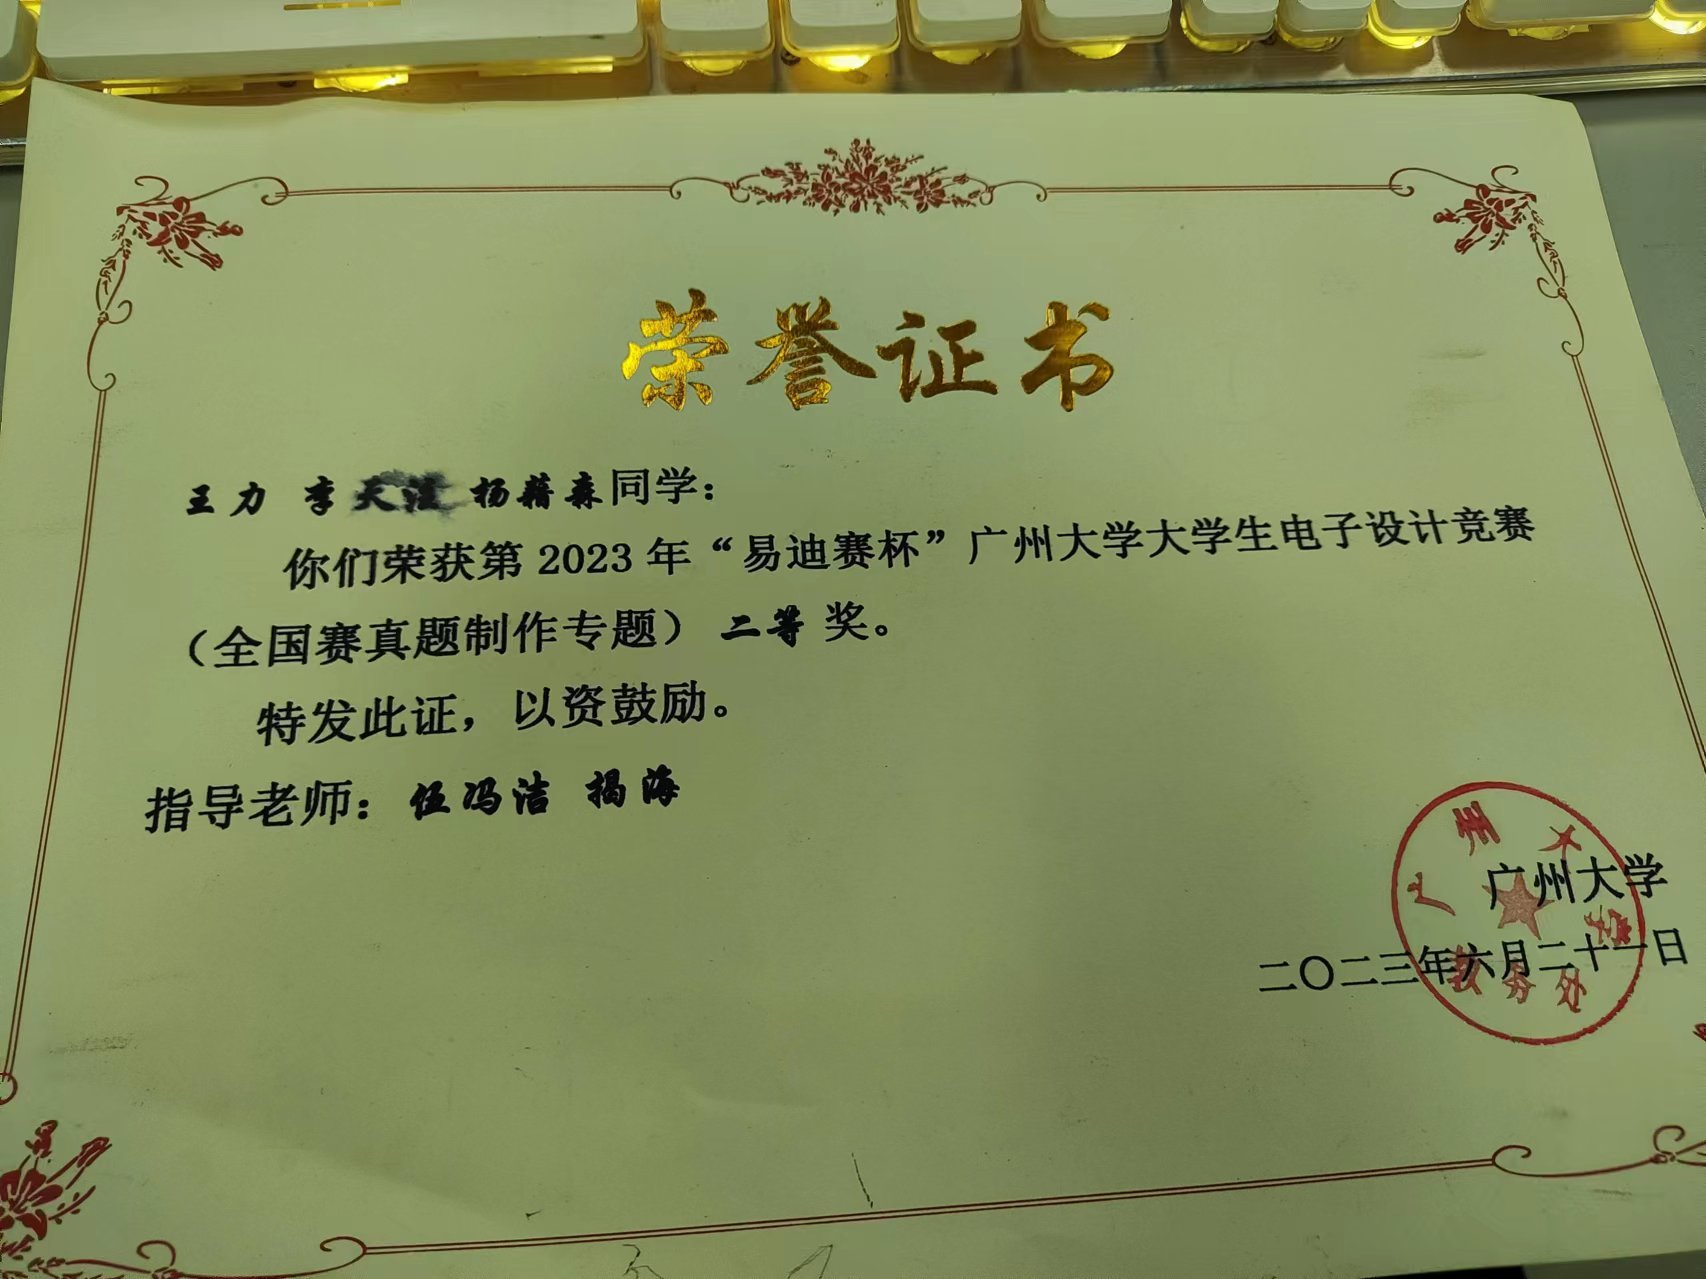 荣誉证书
王力 李天 杨藉森同学：
你们荣获第 2023 年“易迪赛杯”广州大学大学生电子设计竞赛
（全国赛真题制作专题） 二等 奖。
特发此证，以资鼓励。
指导老师：伍冯洁 揭海
广州大学
二〇二三年六月二十一日
广州大学教务处